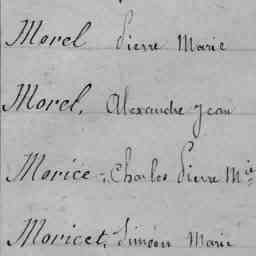 Morel Pierre Marie
Morel, Alexandre Jean
Morice, Charles Pierre Mie
Moricet, Siméon Marie